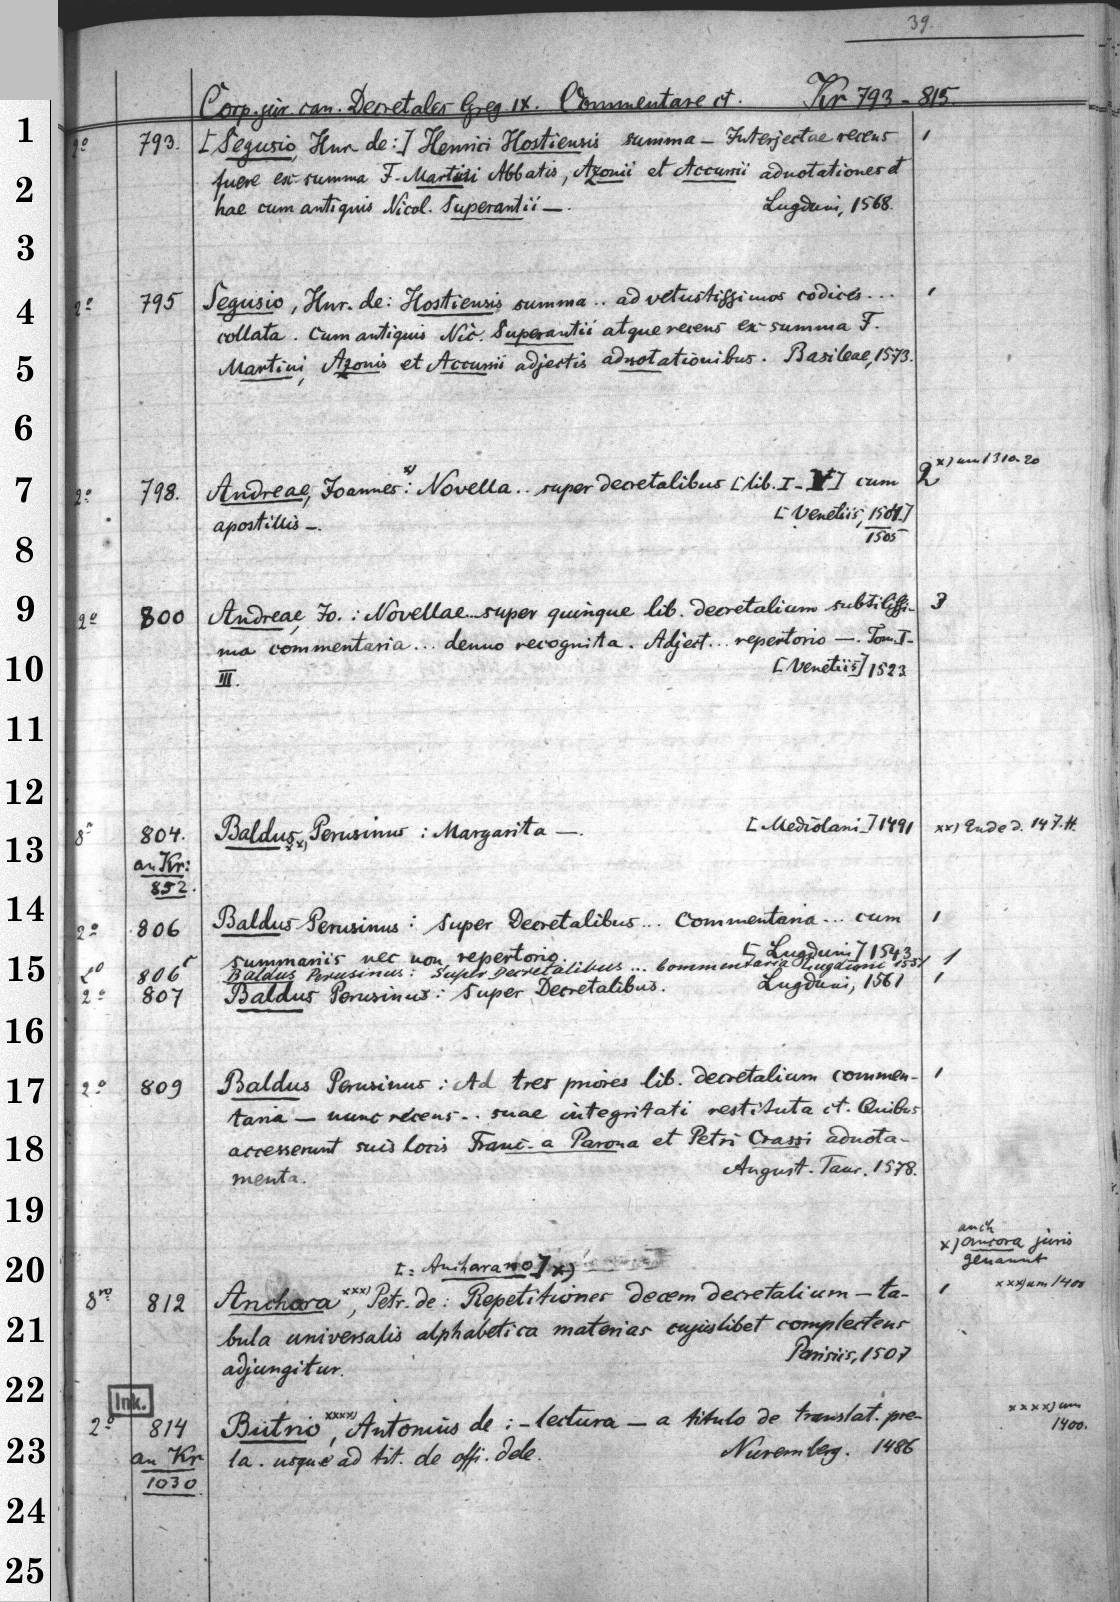 39.
Corp. jur. can. Decretales Greg. IX. Commentare ct. Kr 793 - 815
1
2º 793. [Segusio, Hnr. de:] Henrici Hostiensis summa — Interjectae recens 1
fuere ex summa F. Martini Abbatis, Azonii et Accursii adnotationes et
2
hae cum antiquis Nicol. Superantii —. Lugduni, 1568.
3
2º 795 Segusio, Hnr. de: Hostiensis summa .. ad vetustissimos codices ... 1
4
collata. Cum antiquis Nic. Superantii atque recens ex summa F.
5
Martini, Azonis et Accursii adjectis adnotationibus. Basileae, 1573.
6
x) um 1310-20
7
2º 798. Andreae, Joannes x): Novella .. super decretalibus [lib. I - V] cum 2
apostillis —. [Venetiis, 1501.]
1505
8
9
2º 800 Andreae, Jo.: Novellae .. super quinque lib. decretalium subtilissi- 3
ma commentaria ... denuo recognita. Adject ... repertorio —. Tom. I-
10
III. [Venetiis] 1523
11
12
8º 804. Baldus xx), Perusinus: Margarita —. [Mediolani] 1491 xx) Ende d. 14 J.H.
13
an Kr:
852.
14
2º 806 Baldus Perusinus: Super Decretalibus ... Commentaria ... cum 1
summariis nec non repertorio. [Lugduni] 1543
15
2º 806 c Baldus Perusinus: Super Decretalibus ... Commentaria Lugduni 1551 1
2º 807 Baldus Perusinus: Super Decretalibus. Lugduni, 1561 1
16
17
2º 809 Baldus Perusinus: Ad tres priores lib. decretalium commen- 1
taria — nunc recens .. suae integritati restituta ct. Quibus
18
accesserunt suis locis Franc. a Parona et Petri Crassi adnota-
menta. August. Taur. 1578.
19
anch
x) ancora juris
genannt
20
[: Ancharano] x)
8vo 812 Anchora xxx), Petr. de: Repetitiones decem decretalium — ta- 1 xxx) um 1400
21
bula universalis alphabetica materias cujuslibet complectens
adjungitur. Parisiis, 1507
22
Ink.
2º 814 Butrio xxxx), Antonius de: - lectura — a titulo de translat. pre- xxxx) um
1400.
23
an Kr la. usque ad tit. de offi. dele. Nuremberg. 1486
1030
24
25